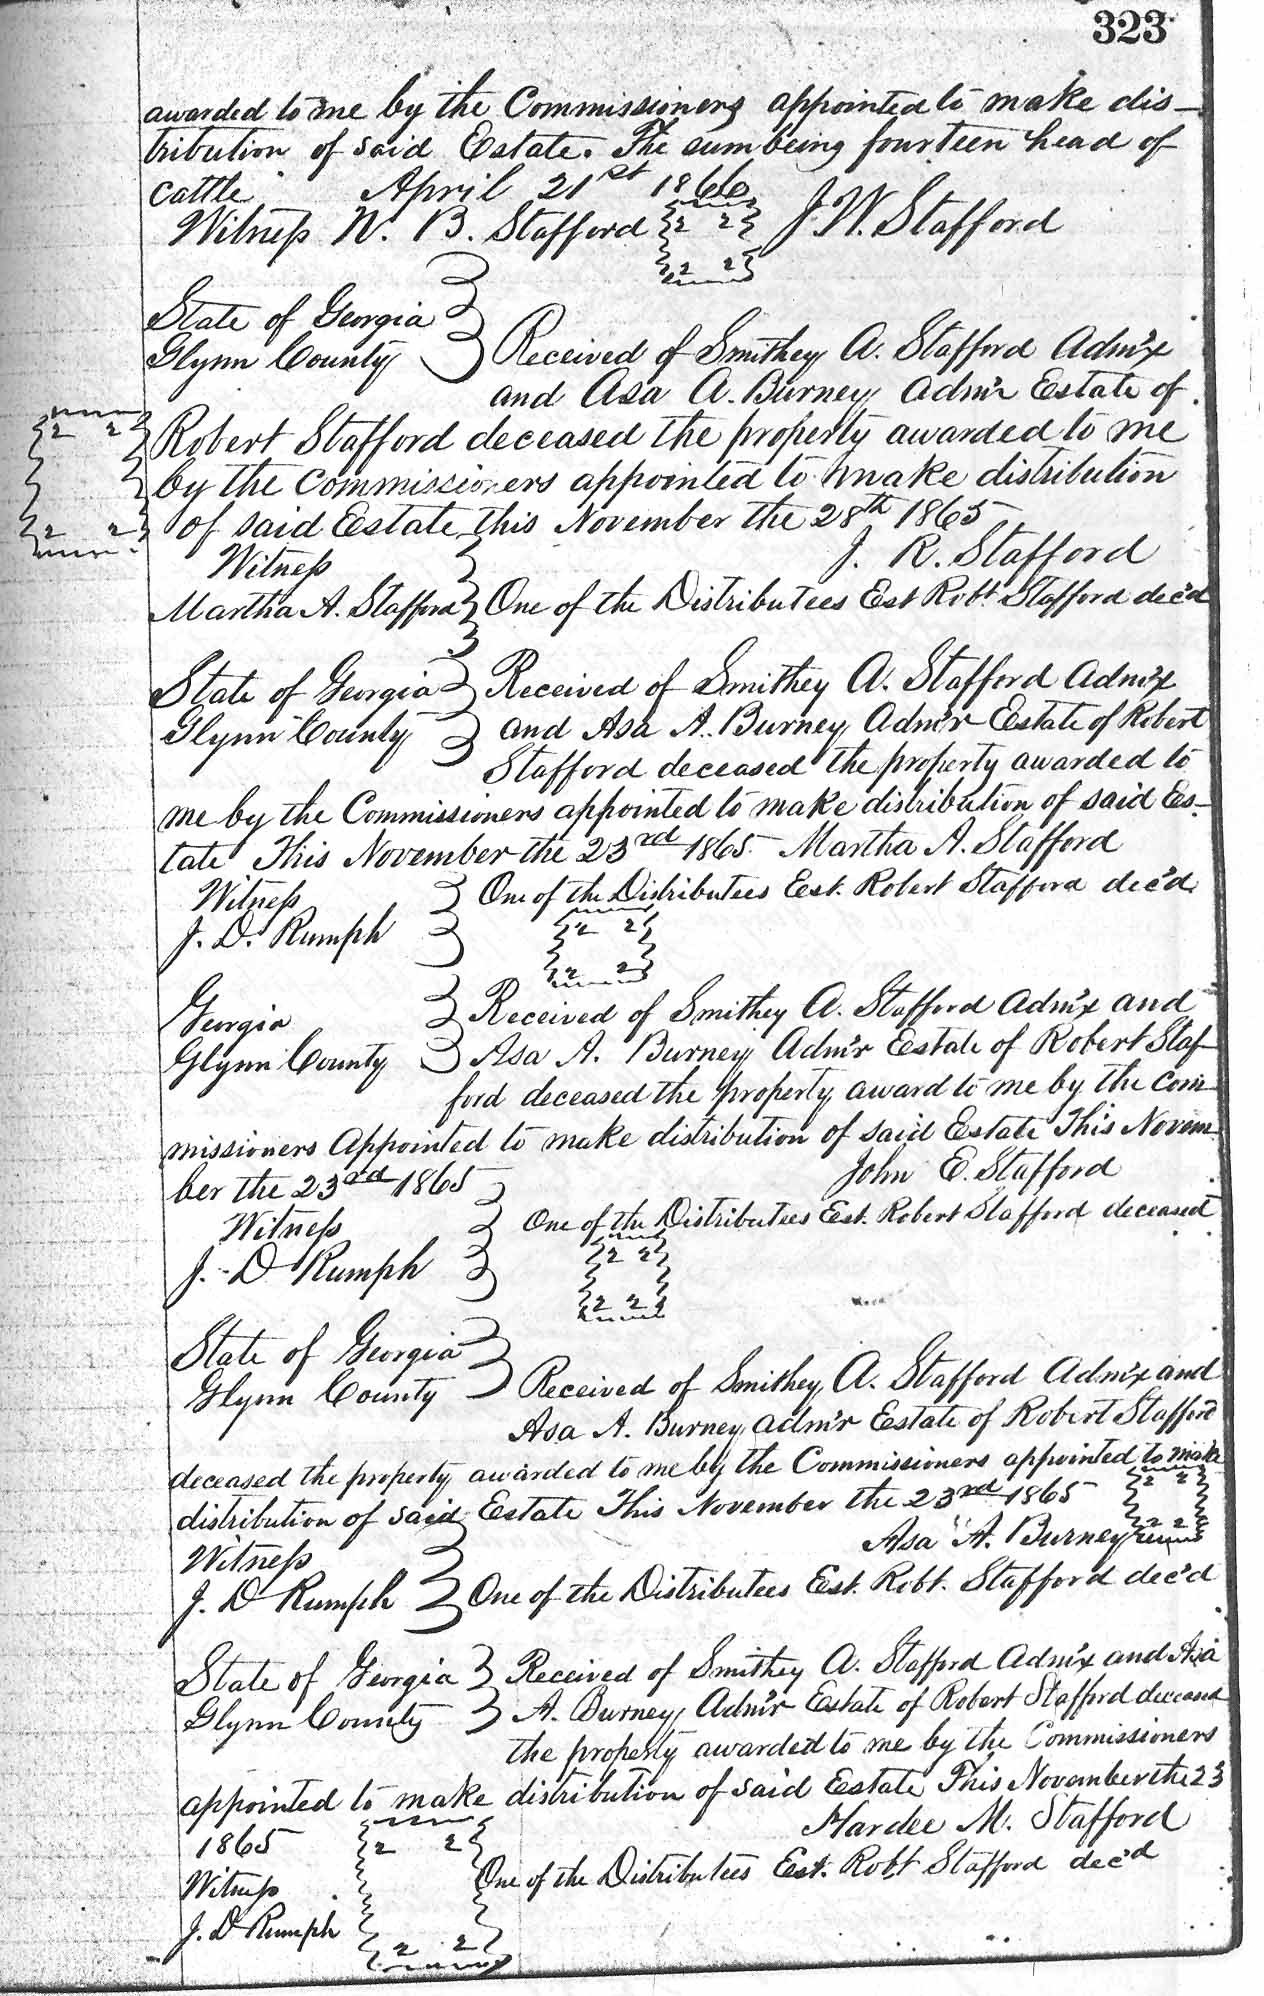 323
awarded to me by the Commissioners appointed to make dis-
tribution of said Estate. The sum being fourteen head of
cattle. April 21st 1866
Witness N. B. Stafford J. W. Stafford
State of Georgia
Glynn County Received of Smithey A. Stafford Adm'x
and Asa A. Burney Adm'r Estate of
Robert Stafford deceased the property awarded to me
by the Commissioners appointed to make distribution
of said Estate this November the 28th 1865
Witness J. R. Stafford
Martha A. Stafford One of the Distributees Est Robt. Stafford dec'd
State of Georgia Received of Smithey A. Stafford Adm'x
Glynn County and Asa A. Burney Adm'r Estate of Robert
Stafford deceased the property awarded to
me by the Commissioners appointed to make distribution of said Es-
tate This November the 23rd 1865 Martha A. Stafford
Witness One of the Distributees Est. Robert Stafford dec'd
J. D. Rumph
Georgia Received of Smithey A. Stafford Adm'x and
Glynn County Asa A. Burney Adm'r Estate of Robert Staf-
ford deceased the property award to me by the Com-
missioners Appointed to make distribution of said Estate This Novem-
ber the 23rd 1865 John E. Stafford
Witness One of the Distributees Est. Robert Stafford deceased
J. D Rumph
State of Georgia
Glynn County Received of Smithey A. Stafford Adm'x and
Asa A. Burney Adm'r Estate of Robert Stafford
deceased the property awarded to me by the Commissioners appointed to make
distribution of said Estate This November the 23rd 1865
Witness Asa A. Burney
J. D Rumph One of the Distributees Est. Robt. Stafford dec'd
State of Georgia Received of Smithey A. Stafford Adm'x and Asa
Glynn County A. Burney Adm'r Estate of Robert Stafford deceased
the property awarded to me by the Commissioners
appointed to make distribution of said Estate This November the 23
1865 Hardee M. Stafford
Witness One of the Distributees Est. Robt Stafford dec'd
J. D Rumph